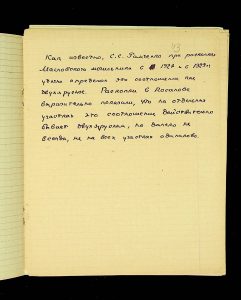 43
Как известно, С.С. Гамченко при раскопках
Масловского могильника с 1928 - с 1929 гг
удачно определил это соотношение как
двухъярусное. Раскопки в Косанове
выразительно показали, что на отдельных
участках это соотношение действительно
бывает двухъярусным, но далеко не
всегда, не на всех участках одинаково.